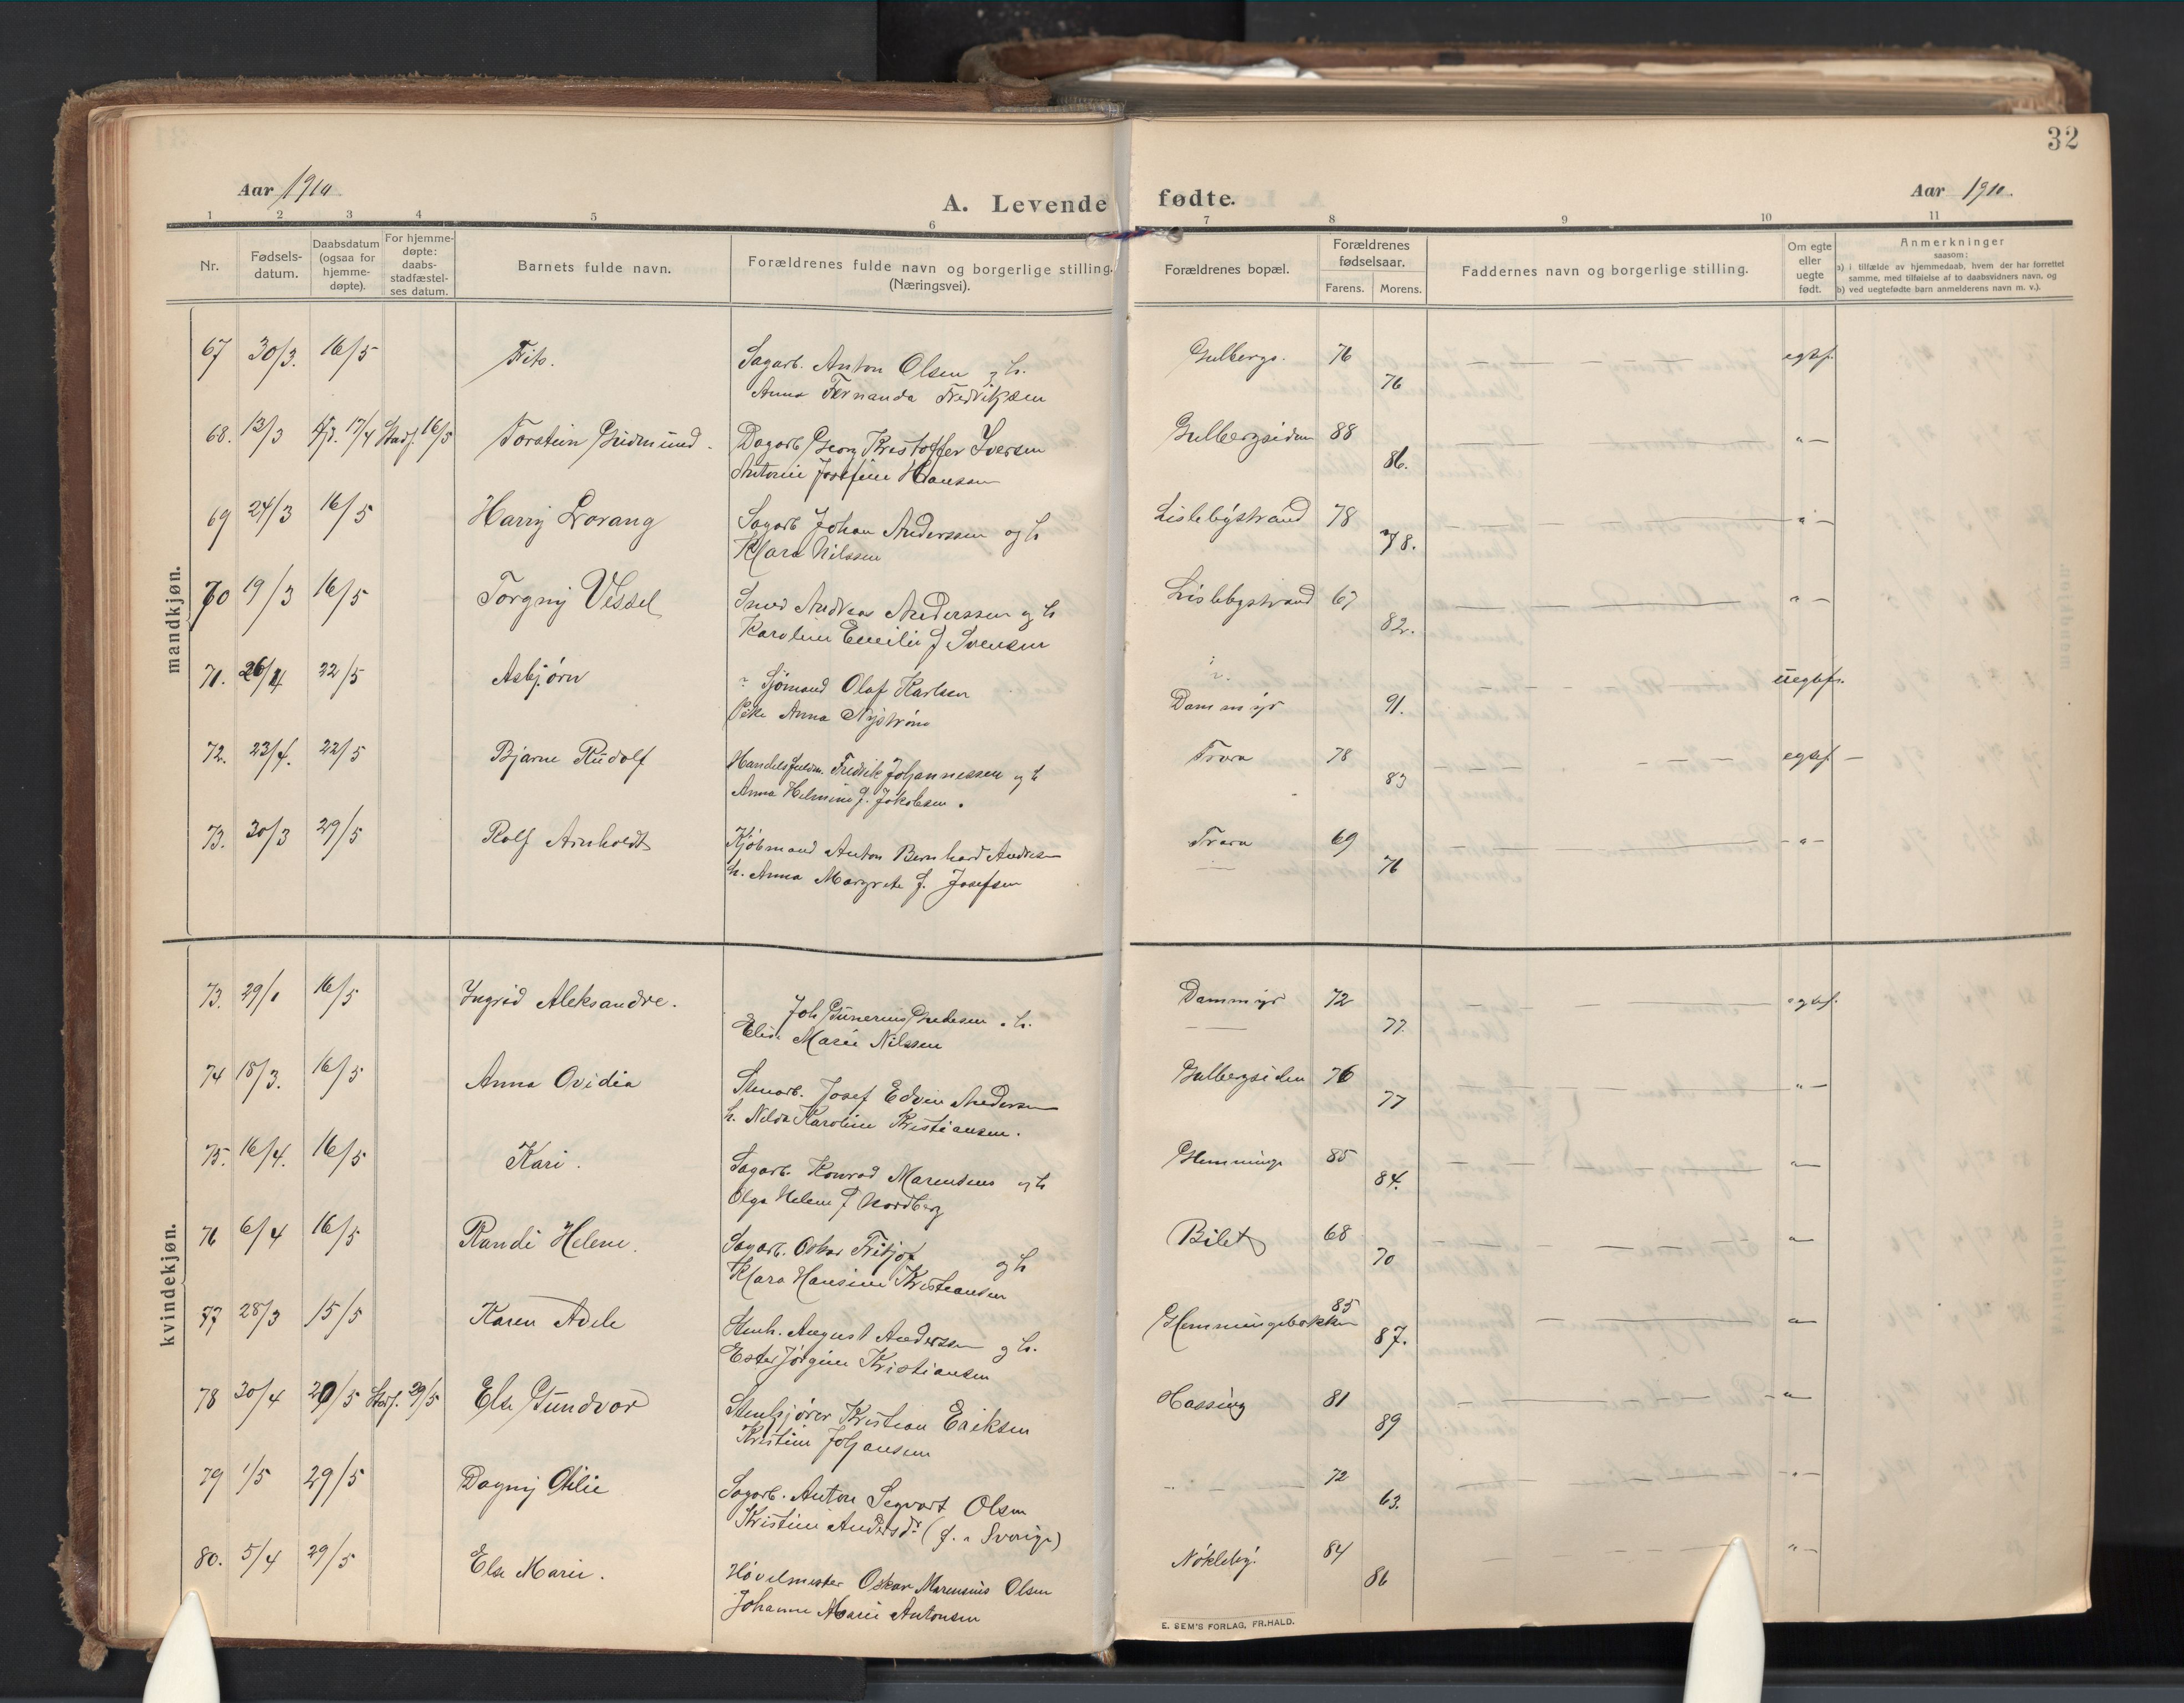 32
Aar 1910
A. Levende fødte.
Aar 1910
1 2 3 4 5 6 7 8 9 10 11
Nr.
Fødsels-
datum.
Daabsdatum
(ogsaa for
hjemme-
døpte).
For hjemme-
døpte:
daabs-
stadfæstel-
ses datum.
Barnets fulde navn.
Forældrenes fulde navn og borgerlige stilling.
(Næringsvei).
Forældrenes bopæl.
Forældrenes
fødselsaar.
Farens. Morens.
Faddernes navn og borgerlige stilling.
Om egte
eller
uegte
født.
Anmerkninger
saasom:
a) i tilfælde av hjemmedaab, hvem der har forrettet
samme, med tilføielse af to daabsvidners navn, og
b) ved uegtefødte barn anmelderens navn m. v.).
mandkjøn.
67 30/3. 16/5 Frits. Sagarb. Anton Olsen og h. Gulbergs. 76 egtef.
Anna Fernanda Fredriksen 76
68. 13/3 Hj. 17/4 Stadf. 16/5 Torstein Gudmund. Dagarb Georg Kristoffer Iversen Gulbergsiden 88 " —
Antonie Josefine Hansen 86.
69 24/3 16/5 Harry Lorang Sagarb Johan Anderssen og h Lislebystrand 78 " —
Klara Nilssen 78.
70 19/3 16/5 Torgny Vessel Smed Andreas Anderssen og h Lislebystrand 67 " —
Karoline Emilie f Svensen 82.
71. 26/4 22/5 Asbjørn ? Sjømand Olaf Karlsen ? uegtef.
Pike Anna Nystrøm Dammyr 91.
72. 23/4. 22/5 Bjarne Rudolf Handelsfuldm. Fredrik Johannessen og h Trara 78 egtef —
Anna Helmine f. Jakobsen. 83
73. 30/3 29/5 Rolf Arnholdt Kjøbmand Anton Bernhard Andresen Trara 69 - " -
h. Anna Margrete f. Josefsen — 76
kvindekjøn.
73. 29/1 16/5 Ingrid Aleksandre. Joh Gunerius Gudesen o. h. Dammyr 72 egtef.
Elise Marie Nilssen — 77.
74 18/3. 16/5 Anna Ovidia Stenarb. Josef Edvin Andersen Gulbergsiden 76 " —
h. Nilda Karoline Kristiansen. 77
75. 16/4. 16/5 Kari. Sagarb. Konrad Marensius og h Glemminge 85 "
Olga Helene f Nordberg 84.
76 6/4 16/5 Randi Helene. Sagarb. Oskar Fritjof og h Bilet 68 "
Klara Hansine Kristiansen 70
77 28/3 15/5 Karen Adele Stenh. August Anderssen og h. Glemmingebakken 85 "
Ester Jørgine Kristiansen 87.
78 30/4 20/5 Stadf. 29/5 Else Gundvor Stenkjører Kristian Eriksen Hassing 81 "
Kristine Johansen 89
79 1/5 29/5 Dagny Otilie Sagarb. Anton Segvart Olsen " 72 - " -
Kristine Andersdr (f. i Sverige) 63.
80. 5/4 29/5 Else Marie. Høvelmester Oskar Marensius Olsen Nökleby. 84 " —
Johanne Marie Antonsen 86
E. SEM'S FORLAG, FR.HALD.